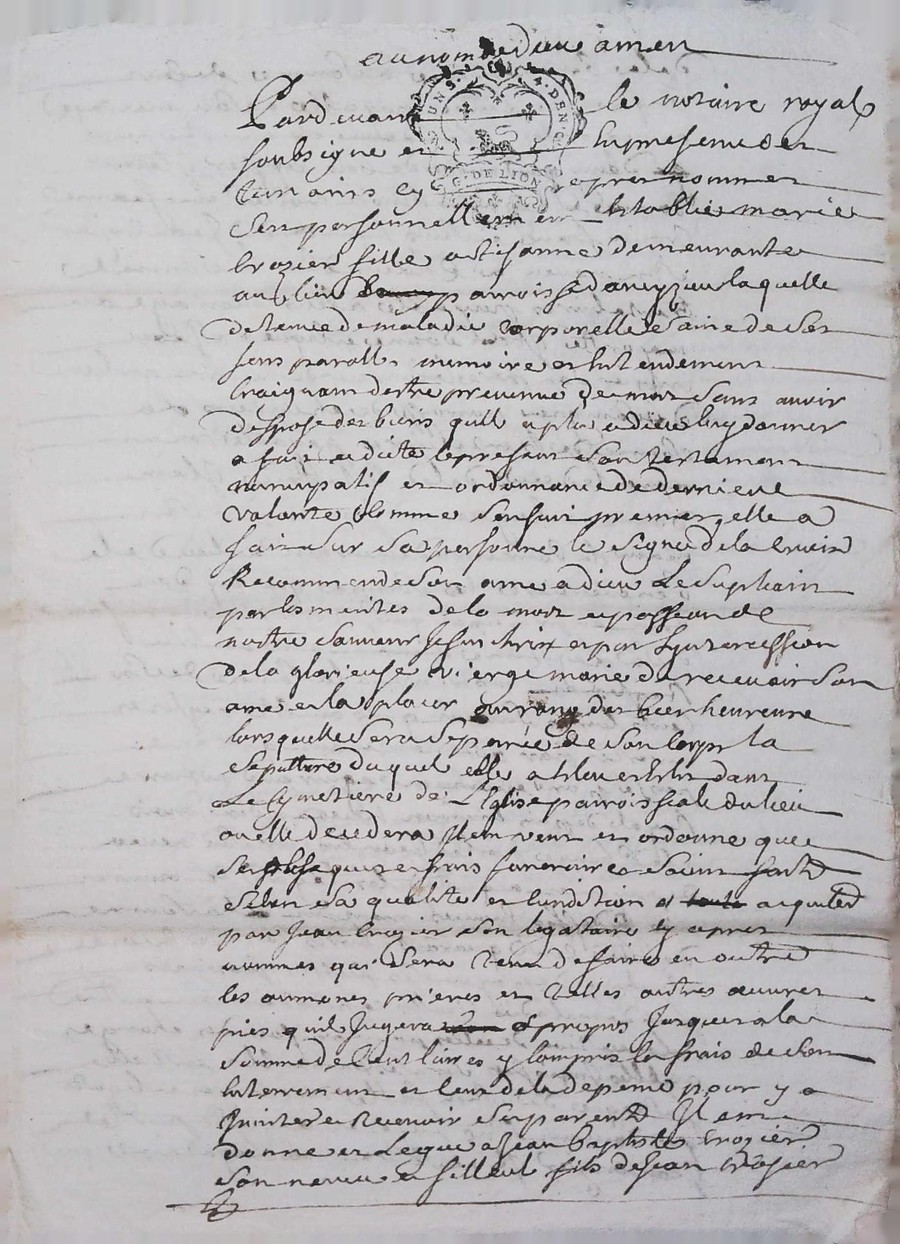 au nom de dieu amen
Pardevant le notaire royal
soubsigne et en presence des
temoins cy apres nommes
UN S. 4. DEN
G. DE LION
sest personnellement establie marie
crozier fille artisanne demeurante
au lieu paroisse darcy laquelle
detenue de maladie corporelle saine de ses
sens parolle memoire et entendement
craignant destre prevenue de mort sans avoir
dispose des biens quil a plu a dieu luy donner
a fait et dicte le present son testament
nuncupatif et ordonnance de derniere
volante comme sensuit premier elle a
fait sur sa personne le signe de la croix
Recommende son ame a dieu Le supliant
par les merites de la mort et passion de
nostre sauveur Jesus christ et par Lintercession
de la glorieuse vierge marie de recevoir son
ame et la placer au rang des bien heureux
lors quelle sera separée de son corps la
sepulture duquel elle a esleu dans
Le Cymetiere de LEglise paroissiale du lieu
ou elle decedera Item veut et ordonne que
ses obseques et frais funeraires soient faits
selon sa qualite et condition et acquités
par Jean crozier son legataire cy apres
nommes qui sera tenu de faire en outre
les aumones prieres et telles autres œuvres
pies quil Jugera a propos Jusques a la
somme de Cent livres y compris les frais de son
enterrement et ceux de la depense pour y
recevoir ses parents Item
donne et Legue a Jean baptiste crozier
son neveu et filleul fils de Jean crozier